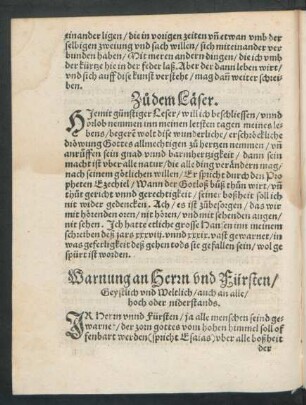 einander ligen / die in vorigen zeiten vñ etwan vmb der
selbigen zweiung vnd sach willen / sich miteinander ver
bunden haben / Mit meren andern dingen / die ich vmb
der kürtze hie in der feder laß. Aber der dann leben wirt /
vnd sich auff dise kunst versteht / mag dañ weiter schrei
ben.
Zů dem Läser.
HJemit günstiger Leser / will ich beschliessen / vnnd
vrlob nemmen inn meinen letsten tagen meines le
bens / begere wölt dise wunderliche / erschröckliche
dröwung Gottes allmechtigen zů hertzen nemmen / vñ
anrüffen sein gnad vnnd barmhertzigkeit / dann sein
macht ist vber alle natur / die alle ding verändern mag /
nach seinem götlichen willen / Er spricht durch den Pro
pheten Ezechiel / Wann der Gotloß bůß thůn wirt / vñ
thůt gericht vnnd gerechtigkeit / seiner boßheit soll ich
nit wider gedencken. Ach / es ist zůbesorgen / das wir
mit hörenden oren / nit hören / vnd mit sehenden augen /
nit sehen. Ich hatte etliche grosse Hansen inn meinem
schreiben deß jars vast gewarnet / in
was geferligkeit deß gehen tods sie gefallen sein / wol ge
spürt ist worden.
Warnung an Herrn vnd Fürsten /
Geystlich vnd Weltlich / auch an alle /
hoch oder niderstands.
JR Herrn vnnd Fürsten / ja alle menschen seind ge
warnet / der zorn gottes vom hohen himmel soll of
fenbart werden (spricht Esaias) vber alle boßheit
der